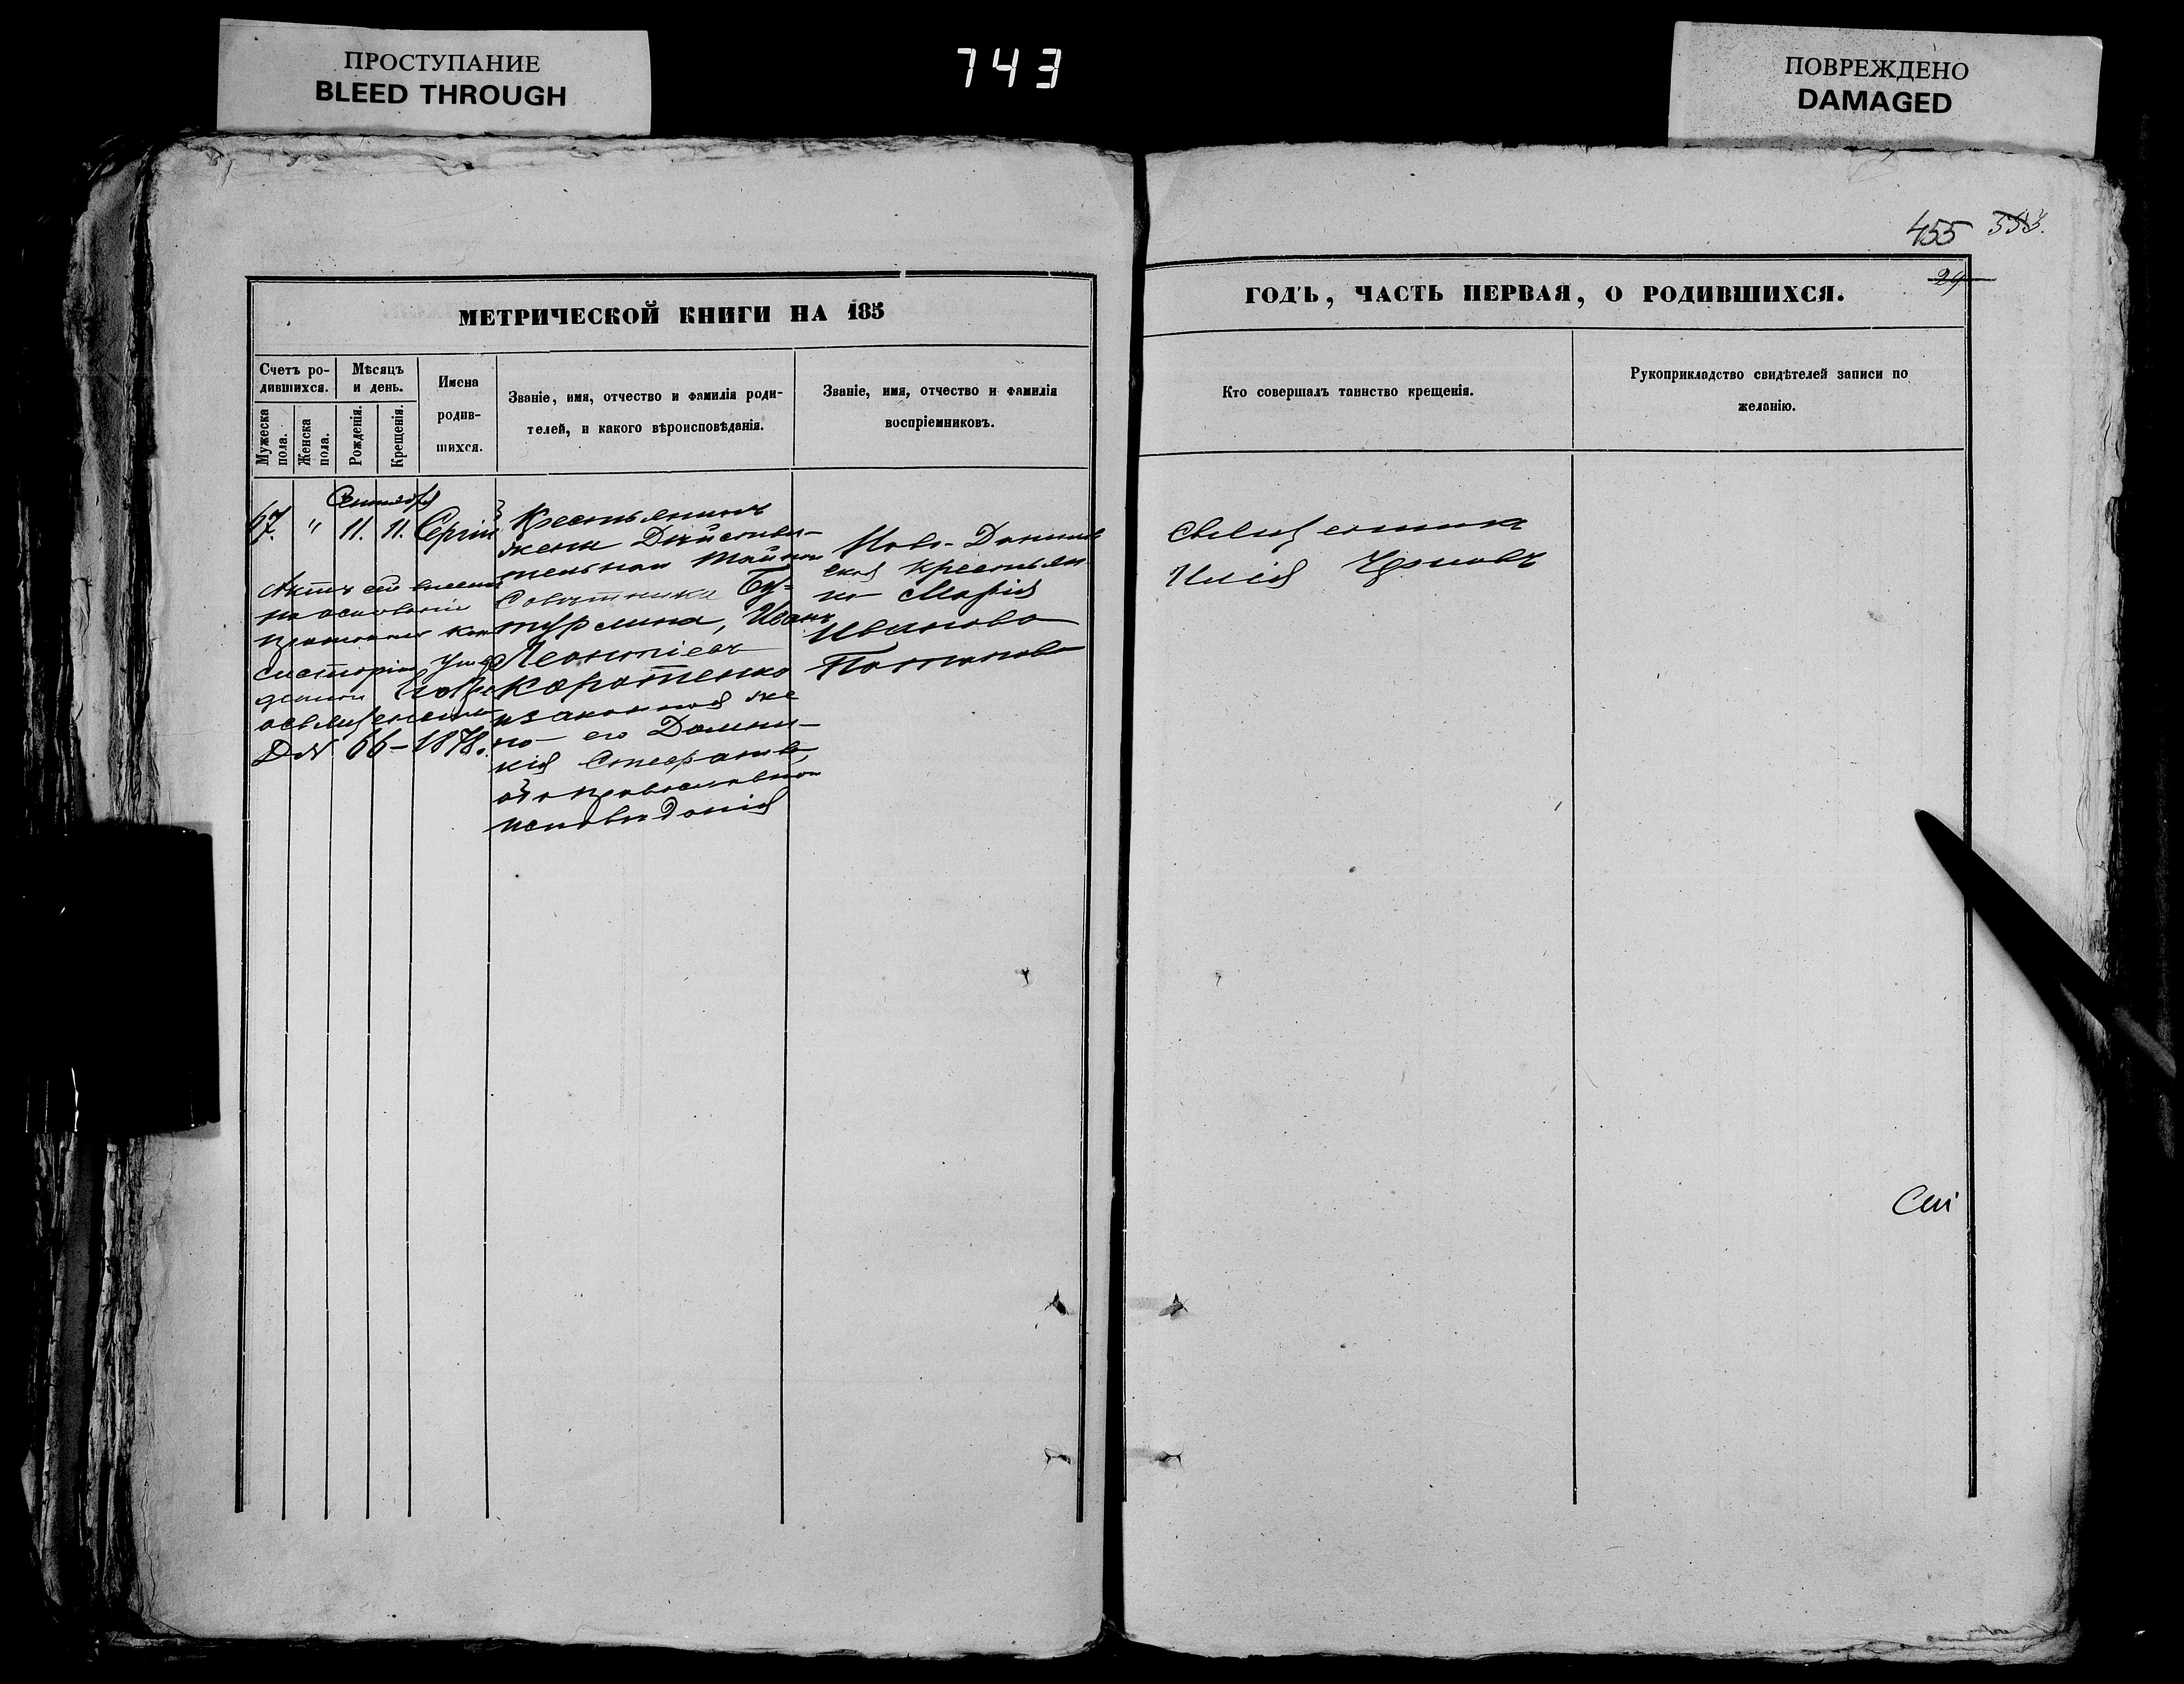 ПРОСТУПАНИЕ
BLEED THROUGH
743
ПОВРЕЖДЕНО
DAMAGED
455 353.
29
МЕТРИЧЕСКОЙ КНИГИ НА 185
ГОДЪ, ЧАСТЬ ПЕРВАЯ, О РОДИВШИХСЯ.
Счетъ ро-
дившихся.
Мужеска
пола.
Женска
пола.
Мѣсяцъ
и день.
Рожденія.
Крещенія.
Имена
родив-
шихся.
Званіе, имя, отчество и фамилія роди-
телей, и какого вѣроисповѣданія.
Званіе, имя, отчество и фамилія
воспріемниковъ.
Кто совершалъ таинство крещенія.
Рукоприкладство свидѣтелей записи по
желанію.
Сентября
67. " 11. 11. Сергій
Актъ сей
на основаніи
Д № 66-1878.
Крестьянинъ
жены Дѣйстви-
тельнаго Тайнаго
Совѣтника Бу-
турлина, Иванъ
Леонтіевъ
Коротенко
и законная же
на его Домни-
кія Стефанова,
оба православнаго
исповѣданія
Ново-
ская крестьян
ка Марія
Иванова
Потапова
Священникъ
Илія Черновъ